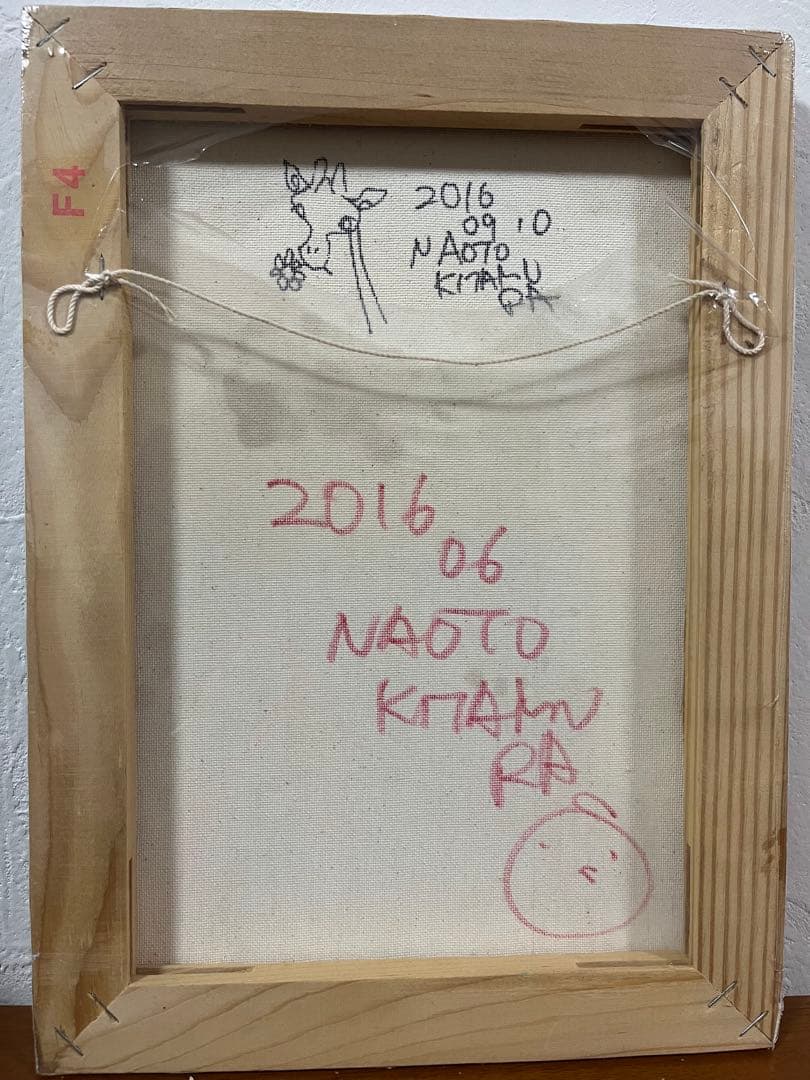 F4
2016
09 10
NAOTO
KITAMU
RA
2016
06
NAOTO
KITAMU
RA